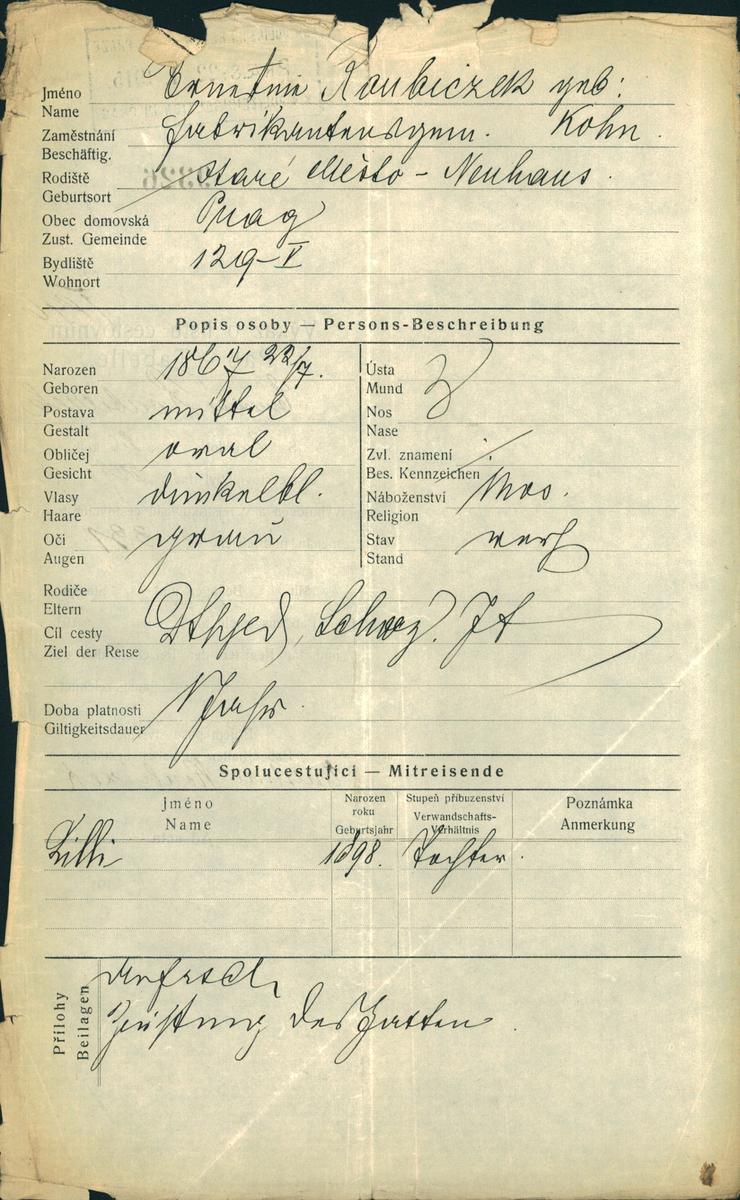 Jméno
Name
Ernestine Roubiczek geb:
Zaměstnání
Beschäftig.
Fabrikantensgem. Kohn.
Rodiště
Geburtsort
Staré Město - Neuhaus.
Obec domovská
Zust. Gemeinde
Prag
Bydliště
Wohnort
129-V
Popis osoby — Persons-Beschreibung
Narozen
Geboren
1867 22/7.
Postava
Gestalt
mittel
Obličej
Gesicht
oval
Vlasy
Haare
dunkelbl.
Oči
Augen
grau
Ústa
Mund
Nos
Nase
Zvl. znamení
Bes. Kennzeichen
Náboženství
Religion
mos.
Stav
Stand
verh
Rodiče
Eltern
Cíl cesty
Ziel der Reise
Dtschld, Schweiz. It
Doba platnosti
Giltigkeitsdauer
1 Jahr.
Spolucestující — Mitreisende
Jméno
Name
Narozen roku
Geburtsjahr
Stupeň příbuzenství
Verwandschafts-
Verhältnis
Poznámka
Anmerkung
Lilli 1898. Tochter.
Přílohy
Beilagen
des Gatten.